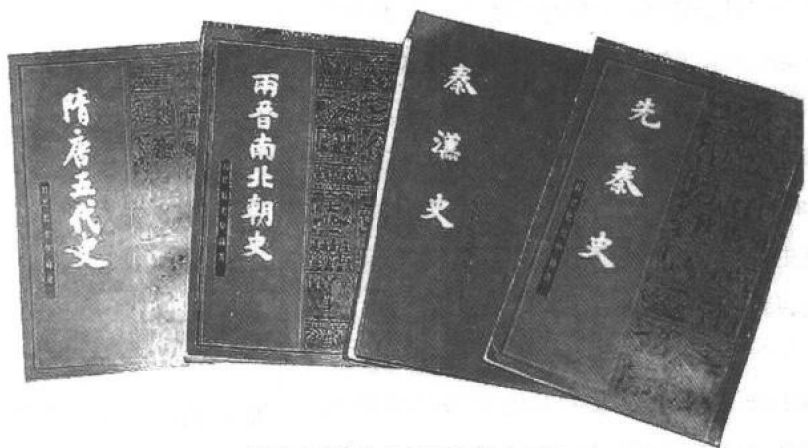 隋唐五代史
兩晉南北朝史
秦漢史
先秦史